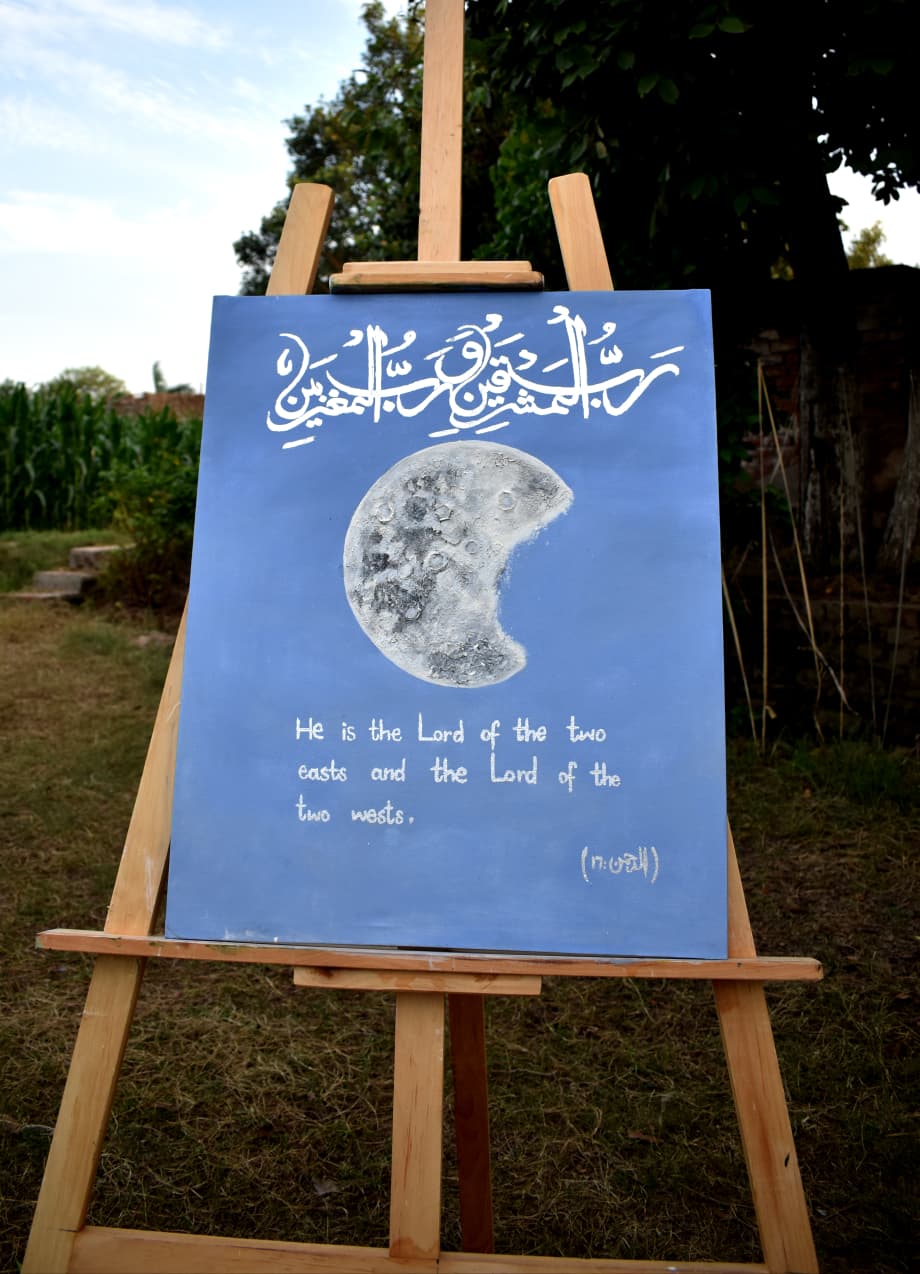 رَبُّ الْمَشْرِقَيْنِ وَرَبُّ الْمَغْرِبَيْنِ
He is the Lord of the two
easts and the Lord of the
two wests.
(الرحمٰن: ۱۷)